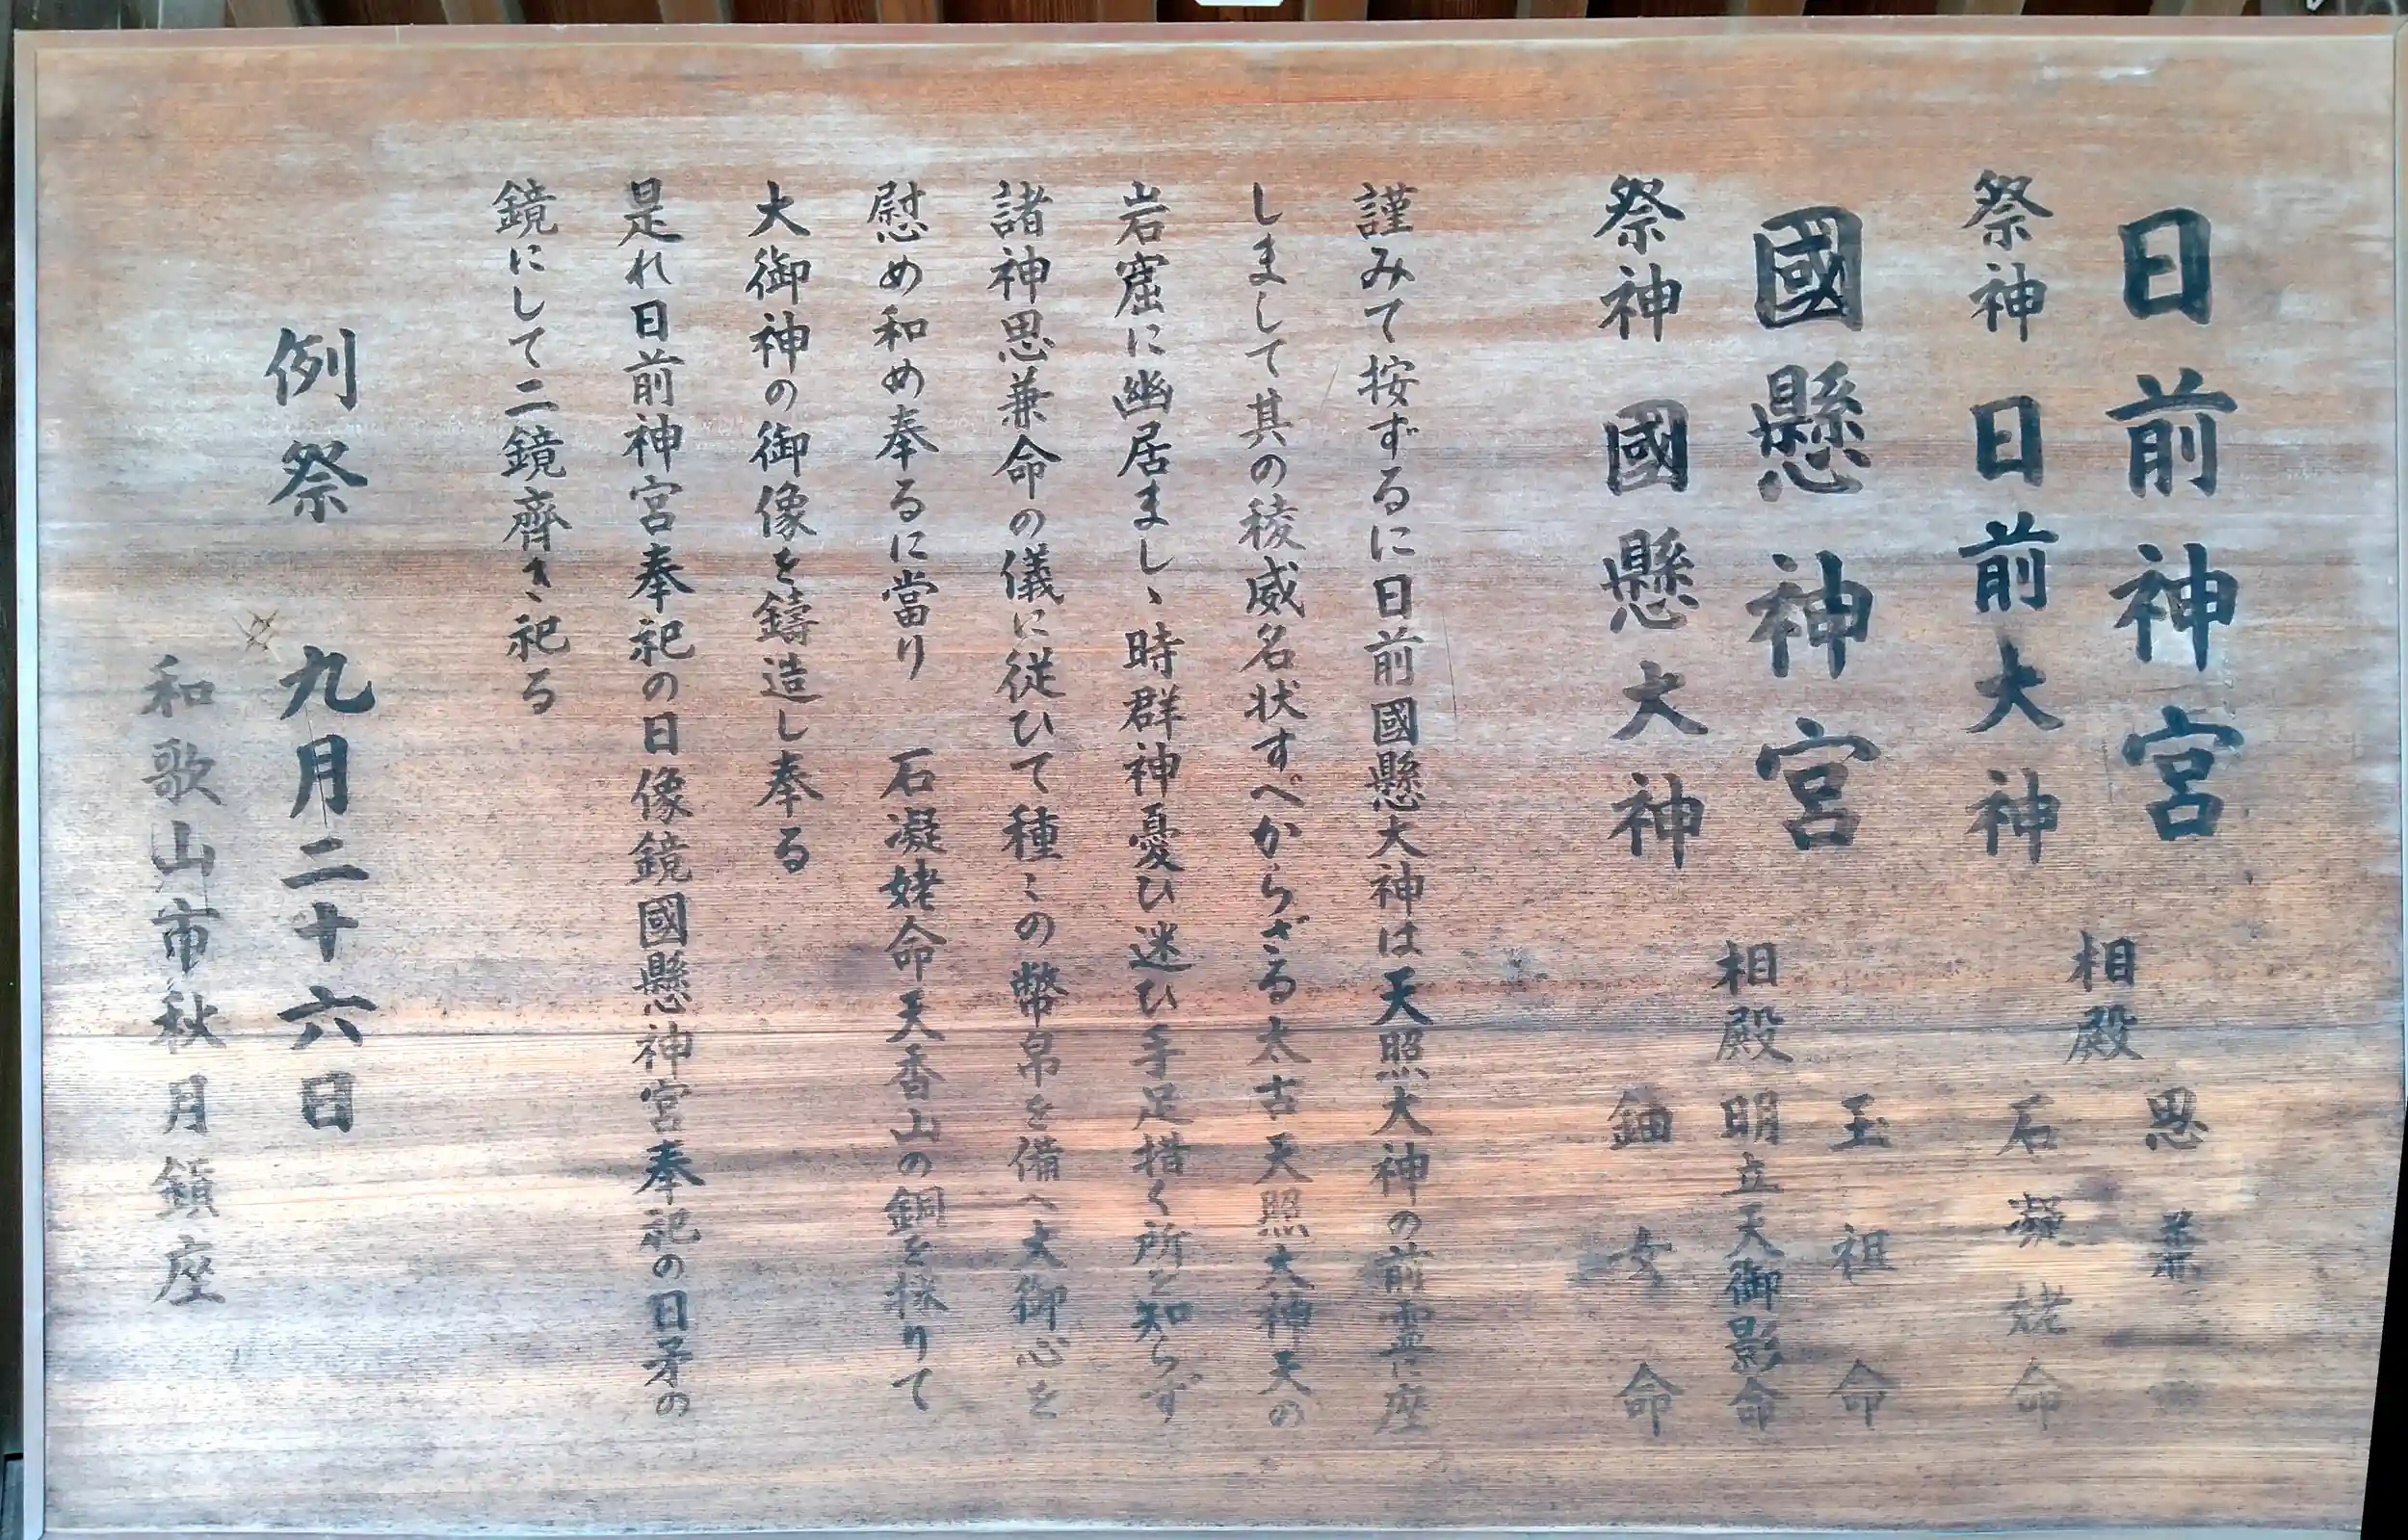 日前神宮
祭神 日前大神
相殿
思兼
石凝姥命
國懸神宮
祭神 國懸大神
相殿
玉祖命
明立天御影命
鈿女命
謹みて按ずるに日前國懸大神は天照大神の前霊に座
しまして其の稜威名状すべからざる太古天照大神天の
岩窟に幽居まし、時群神憂ひ迷ひ手足措く所を知らず
諸神思兼命の儀に従ひて種〻の幣帛を備へ大御心を
慰め和め奉るに當り 石凝姥命天香山の銅を採りて
大御神の御像を鑄造し奉る
是れ日前神宮奉祀の日像鏡國懸神宮奉祀の日矛の
鏡にして二鏡齊き祀る
例祭 九月二十六日
和歌山市秋月鎮座